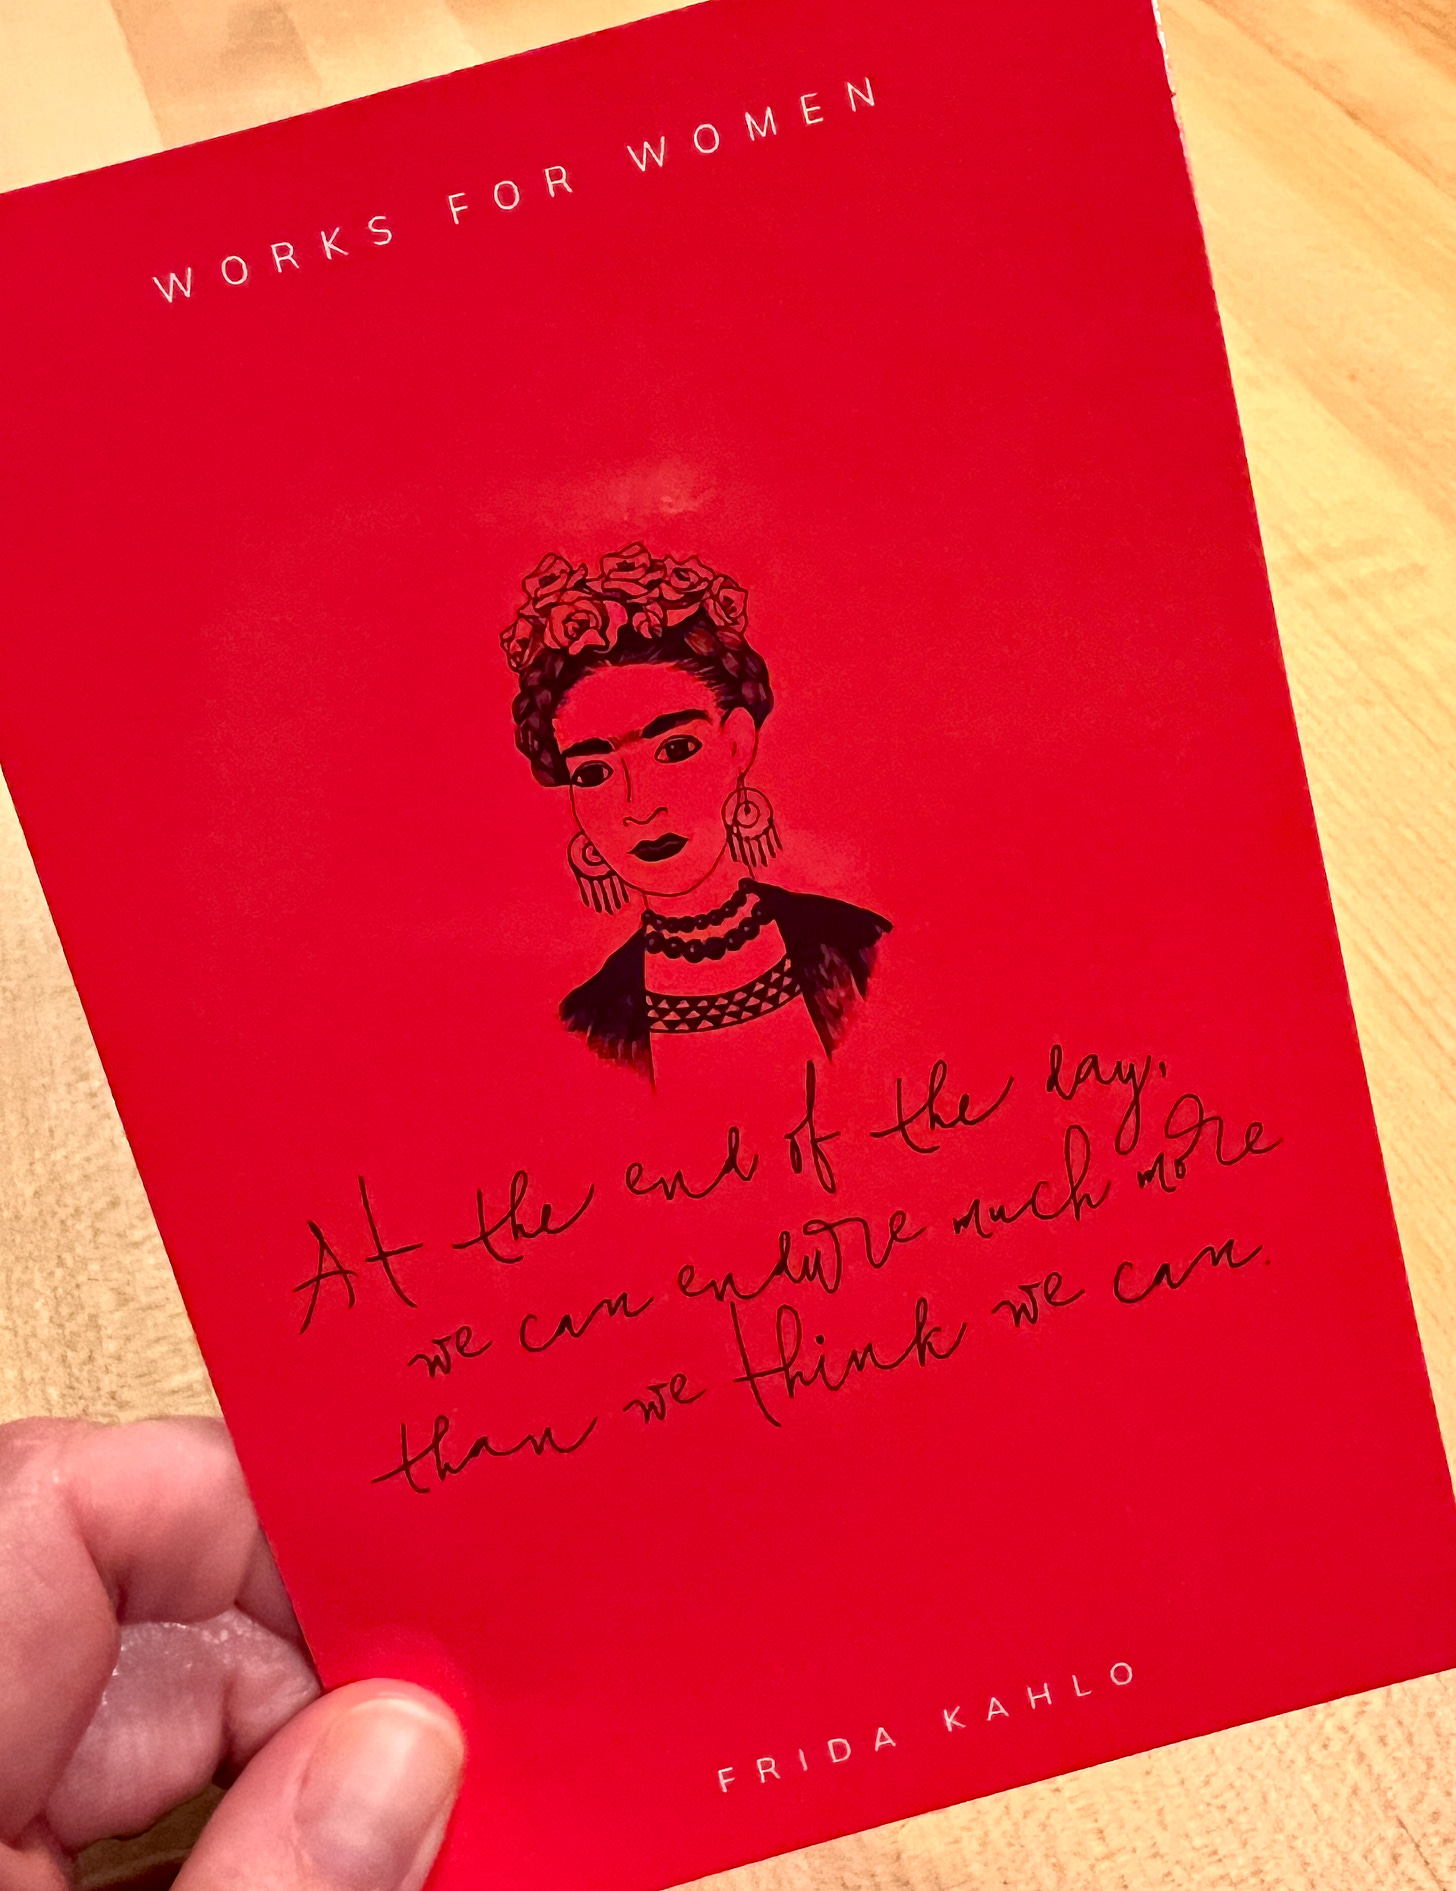 WORKS FOR WOMEN
At the end of the day,
we can endure much more
than we think we can.
FRIDA KAHLO